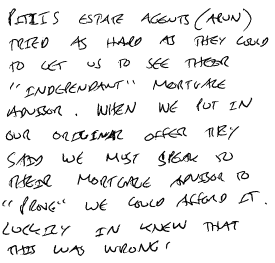 PITTIS ESTATE AGENTS (ARUN)
TRIED AS HARD AS THEY COULD
TO GET US TO SEE THEIR
"INDEPENDANT" MORTGAGE
ADVISOR. WHEN WE PUT IN
OUR ORIGINAL OFFER THEY
SAID WE MUST SPEAK TO
THEIR MORTGAGE ADVISOR TO
"PROVE" WE COULD AFFORD IT.
LUCKILY I KNEW THAT
THIS WAS WRONG!